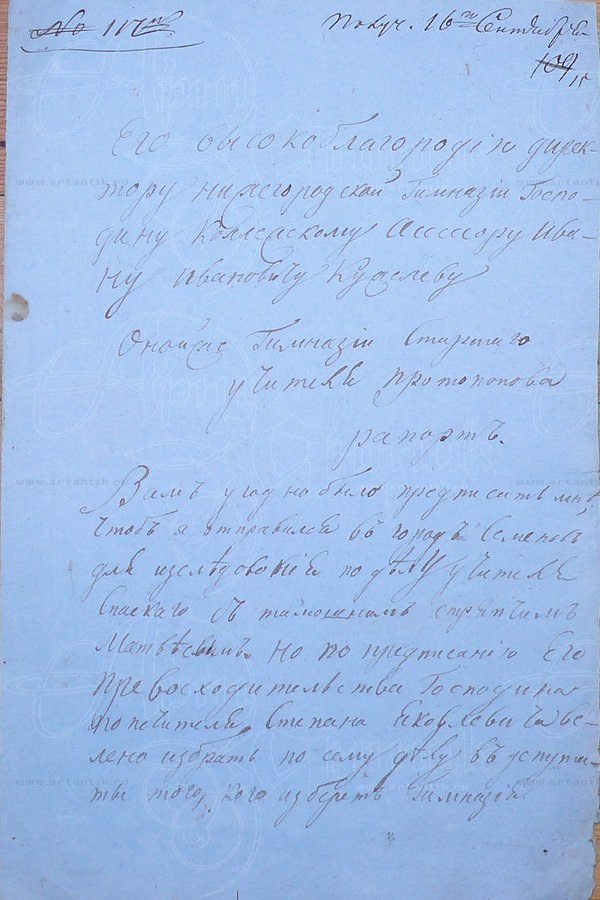 No 117й
Получ. 16го Сентября
109
15
Его высокоблагородію дирек-
тору нижегородской Гимназіи Госпо-
дину Коллежскому Ассесору Ива-
ну Ивановичу
Оной же Гимназіи Старшаго
учителя протопопова
рапортъ.
Вамъ угодно было предписать мнѣ,
чтобъ я отправился въ городъ Семеновъ
для изслѣдованія по дѣлу учителя
Спаскаго съ тамошнимъ стряпчимъ
Матвѣевымъ. но по предписанію Его
Превосходительства Господина
попечителя Степана Яковлевича ве-
лено избрать по сему дѣлу въ депута-
ты того, кого изберетъ Гимназія.
www.artantik.ru